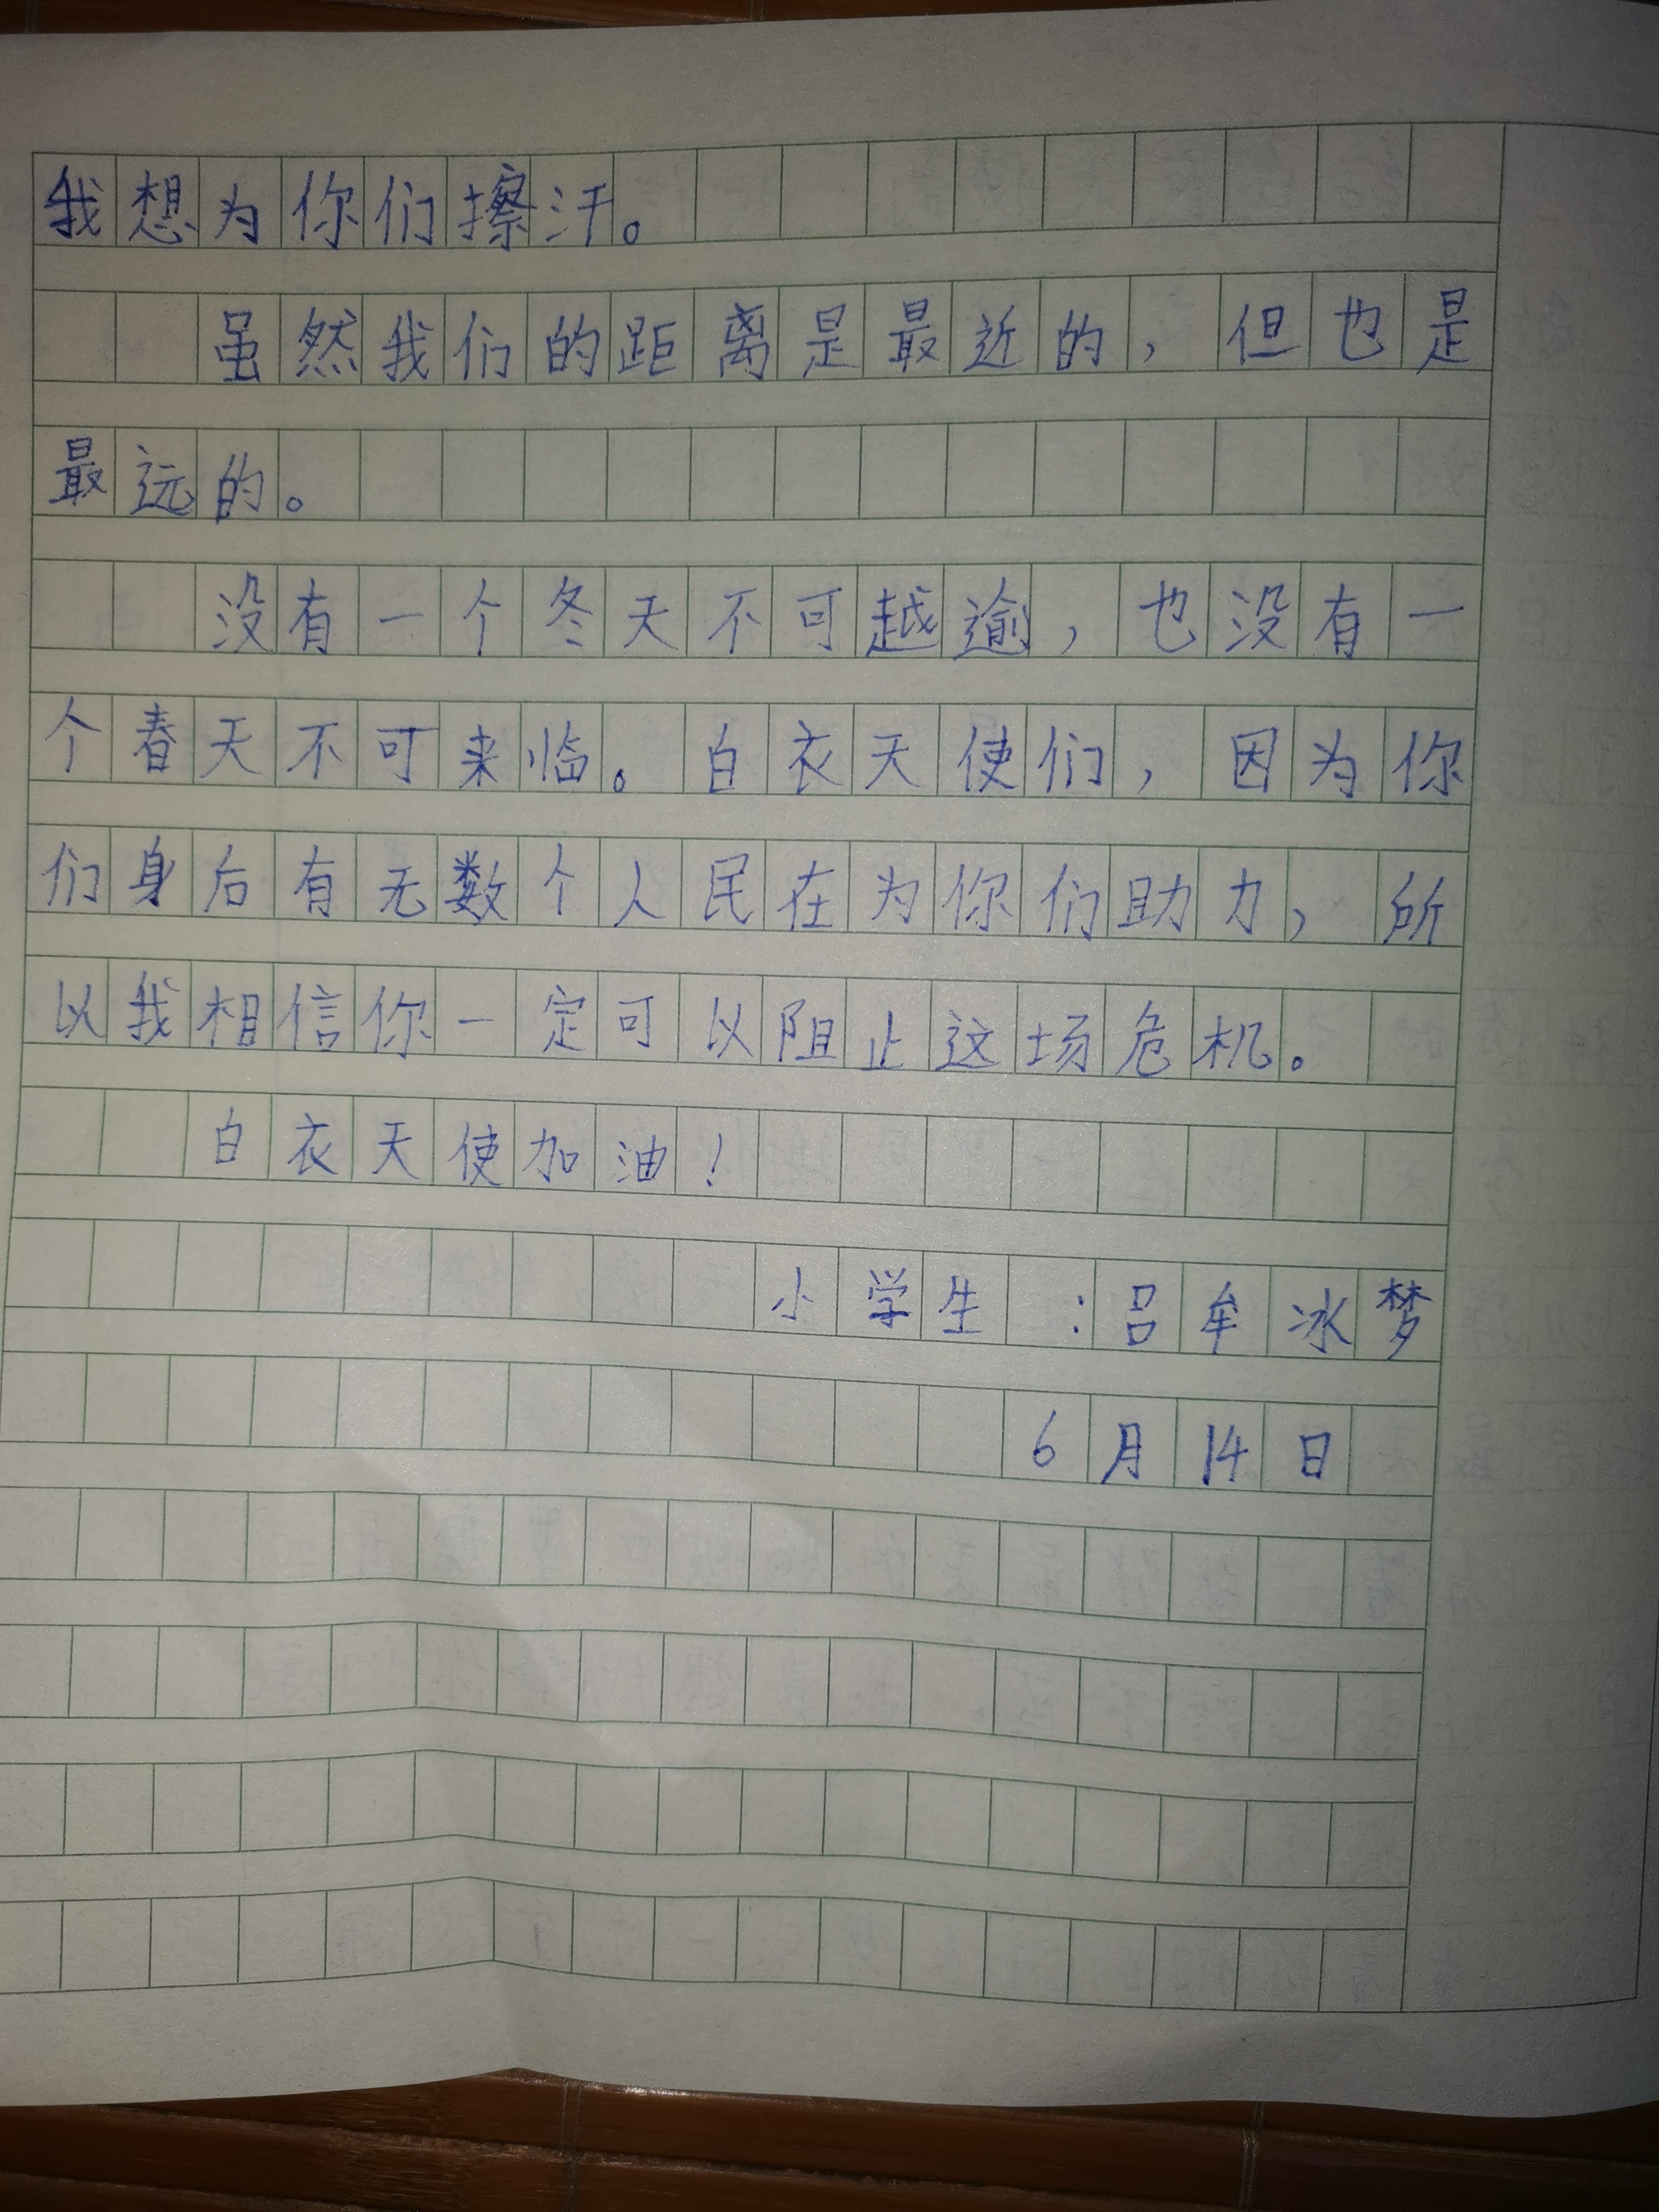 我想为你们擦汗。
虽然我们的距离是最近的，但也是
最远的。
没有一个冬天不可越逾，也没有一
个春天不可来临。白衣天使们，因为你
们身后有无数个人民在为你们助力，所
以我相信你一定可以阻止这场危机。
白衣天使加油！
小学生：吕牟冰梦
6月14日